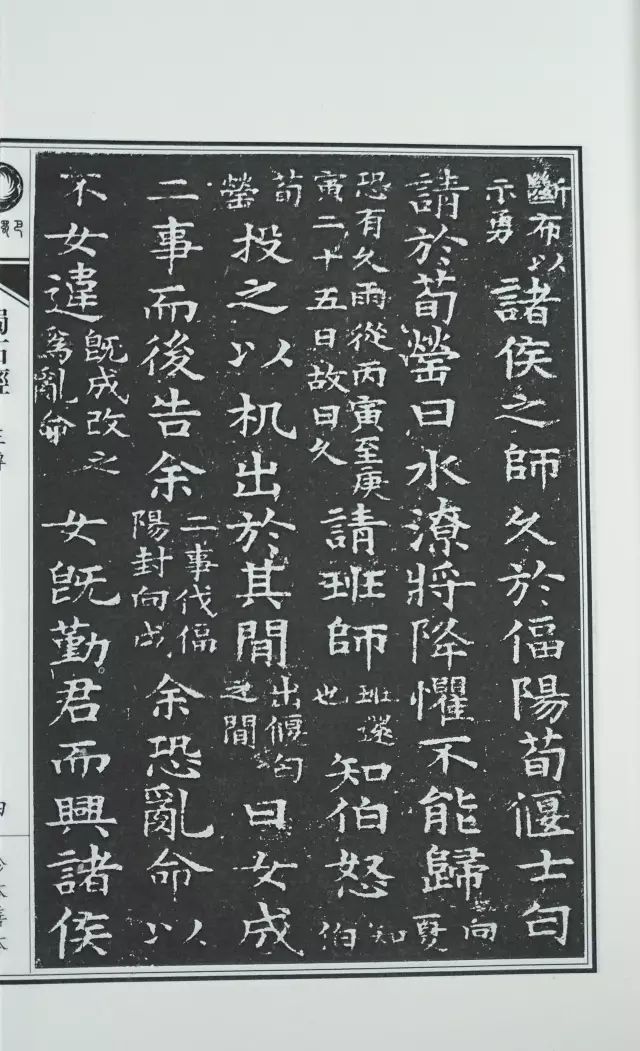 斷布以示勇諸侯之師久於偪陽荀偃士匄
請於荀罃曰水潦將降懼不能歸向夏
恐有久雨從丙寅至庚寅二十五日故曰久請班師班還也知伯怒知伯
荀罃投之以机出於其閒出偃匄之閒曰女成
二事而後告余二事伐偪陽封向戌余恐亂命以
不女違既成改之爲亂命女既勤君而興諸侯
蜀石經